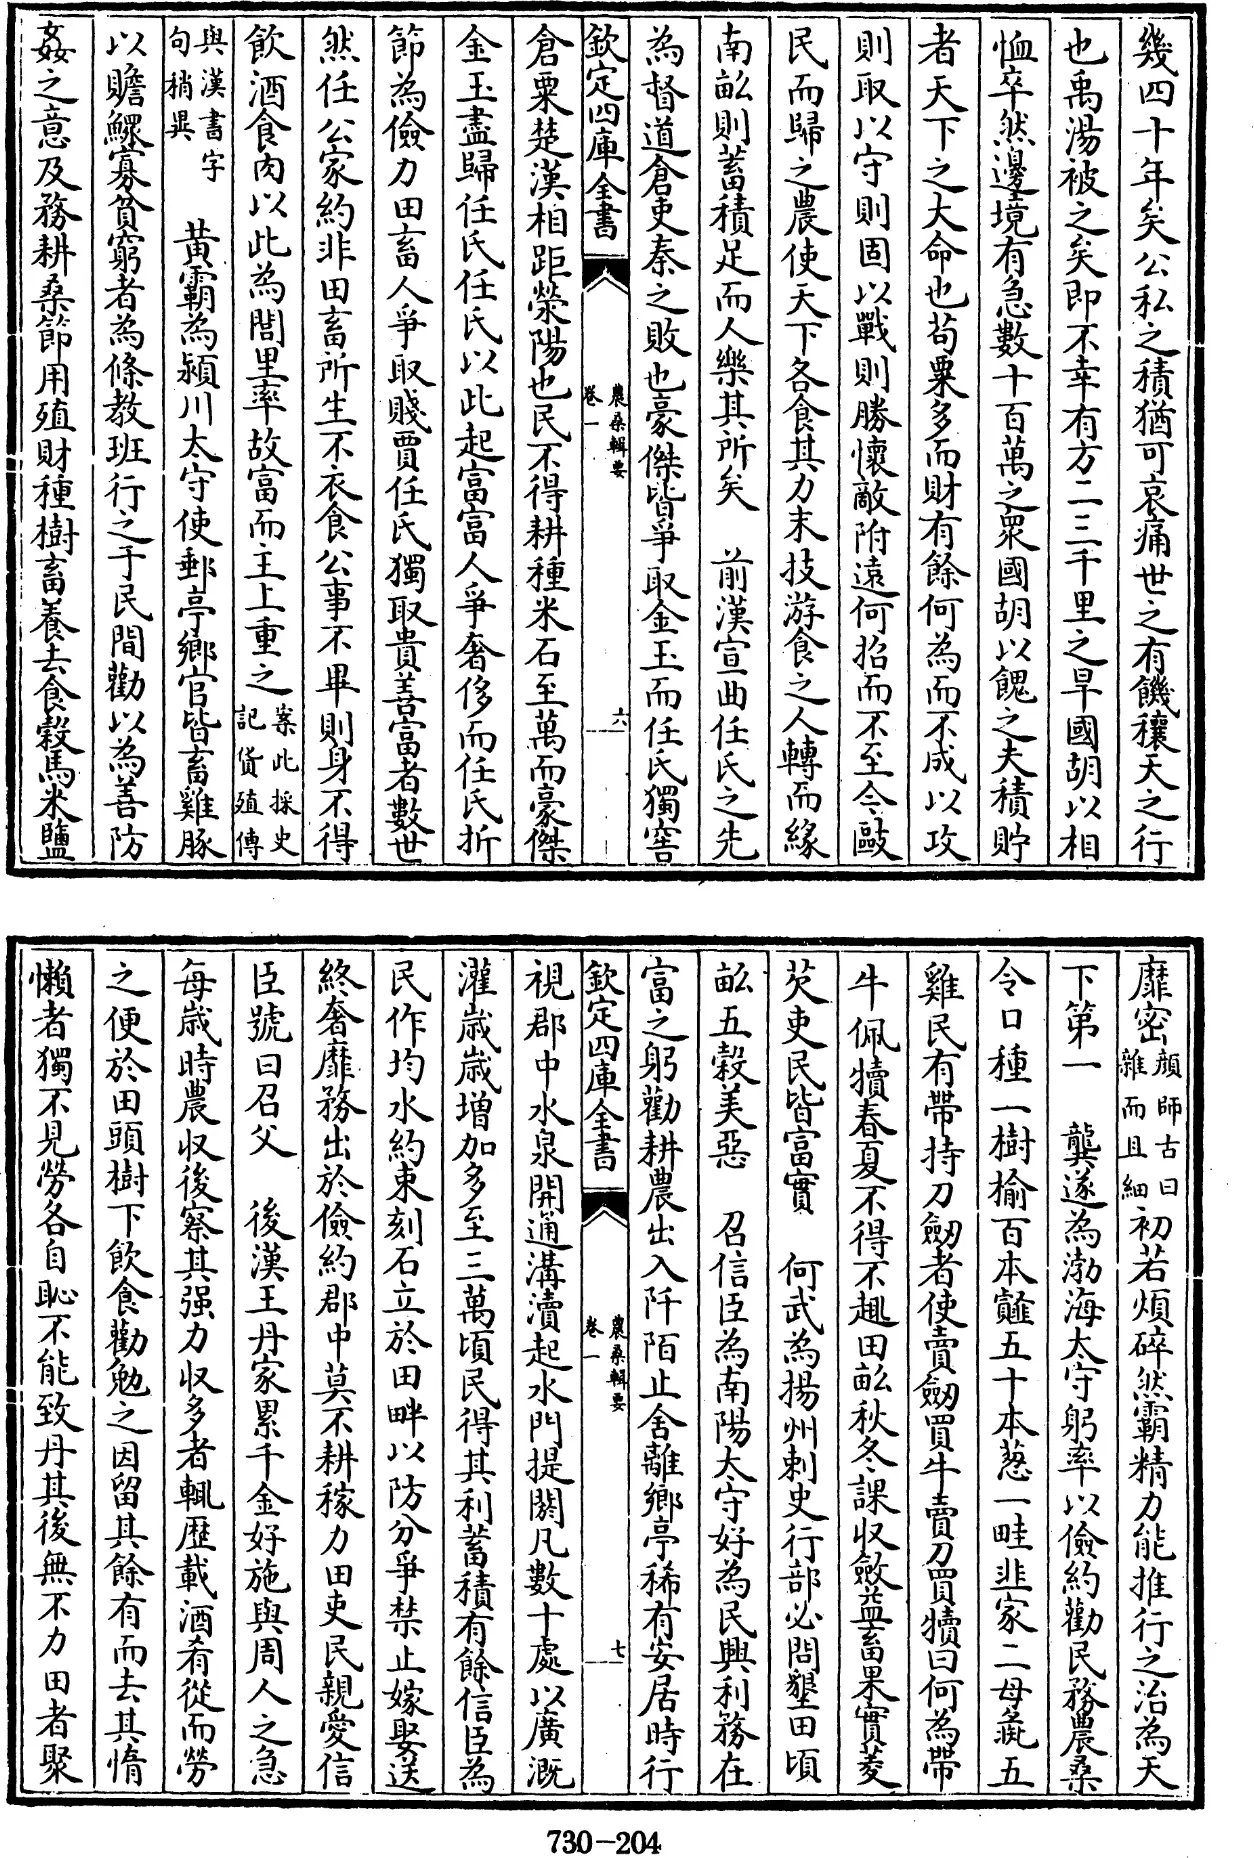 幾四十年矣公私之積猶可哀痛世之有饑穰天之行
也禹湯被之矣即不幸有方二三千里之旱國胡以相
恤卒然邊境有急數十百萬之衆國胡以餽之夫積貯
者天下之大命也茍粟多而財有餘何為而不成以攻
則取以守則固以戰則勝懷敵附遠何招而不至今敺
民而歸之農使天下各食其力末技游食之人轉而緣
南畝則蓄積足而人樂其所矣　前漢宣曲任氏之先
為督道倉吏秦之敗也豪傑皆爭取金玉而任氏獨窖
欽定四庫全書
農桑輯要
卷一
六
倉粟楚漢相距滎陽也民不得耕種米石至萬而豪傑
金玉盡歸任氏任氏以此起富富人爭奢侈而任氏折
節為儉力田畜人爭取賤賈任氏獨取貴善富者數世
然任公家約非田畜所生不衣食公事不畢則身不得
飲酒食肉以此為閭里率故富而主上重之案此採史
記貨殖傳
與漢書字
句稍異　黃霸為潁川太守使郵亭鄉官皆畜雞豚
以贍鰥寡貧窮者為條教班行之于民間勸以為善防
姦之意及務耕桑節用殖財種樹畜養去食穀馬米鹽
靡密顔師古曰
雜而且細初若煩碎然霸精力能推行之治為天
下第一　龔遂為渤海太守躬率以儉約勸民務農桑
令口種一樹榆百本䪥五十本葱一畦韭家二母彘五
雞民有帶持刀劒者使賣劒買牛賣刀買犢曰何為帶
牛佩犢春夏不得不趣田畝秋冬課收斂益畜果實菱
芡吏民皆富實　何武為揚州刺史行部必問墾田頃
畝五穀美惡　召信臣為南陽大守好為民興利務在
富之躬勸耕農出入阡陌止舍離鄉亭稀有安居時行
欽定四庫全書
農桑輯要
卷一
七
視郡中水泉開通溝瀆起水門提閼凡數十處以廣溉
灌歲歲增加多至三萬頃民得其利蓄積有餘信臣為
民作均水約束刻石立於田畔以防分爭禁止嫁娶送
終奢靡務出於儉約郡中莫不耕稼力田吏民親愛信
臣號曰召父　後漢王丹家累千金好施與周人之急
每歲時農收後察其强力收多者輒歷載酒肴從而勞
之便於田頭樹下飲食勸勉之因留其餘有而去其惰
懶者獨不見勞各自恥不能致丹其後無不力田者聚
730-204